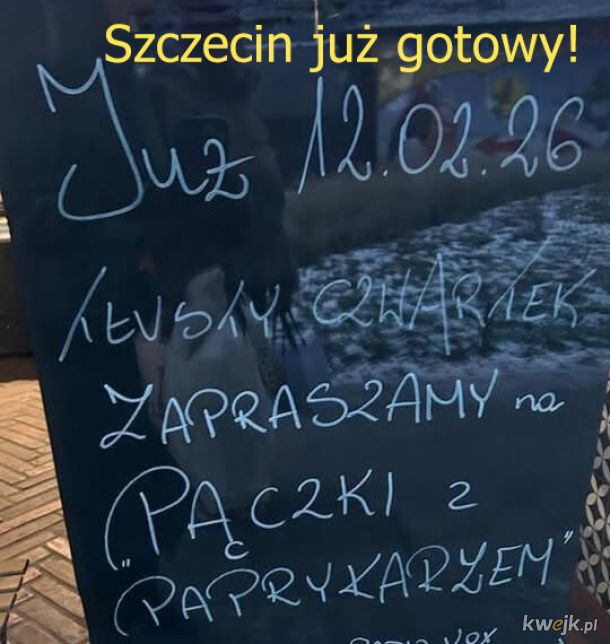 Szczecin już gotowy!
Już 12.02.26
TŁUSTY CZWARTEK
ZAPRASZAMY na
"PĄCZKI z
PAPRYKARZEM"
kwejk.pl